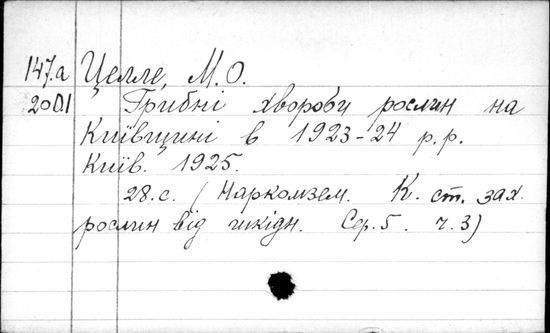 147.а Целле, М. О.
2001 Грибні хвороби рослин на
Київщині в 1923-24 р.р.
Київ. 1925.
28.с. (Наркомзем. К. ст. зах.
рослин від шкідн. Сер.5. ч.3)